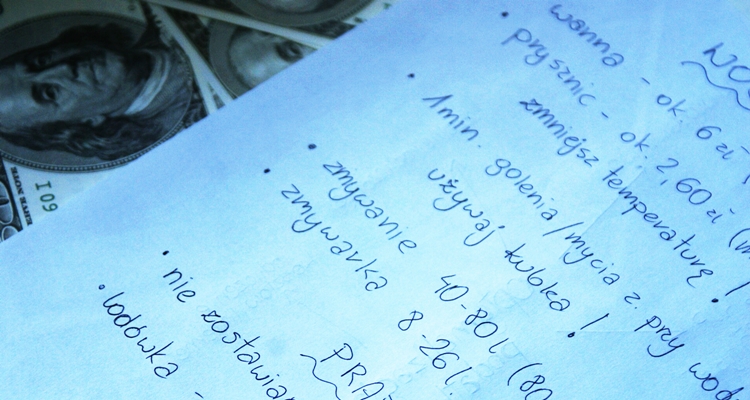 wanna - ok. 6 zł
prysznic - ok. 2,60 zł
zmniejsz temperaturę!
1 min. golenia/mycia z. przy
używaj kubka!
zmywanie 40-80l (80
zmywarka 8-26l.
nie zostawiaj
lodówka -